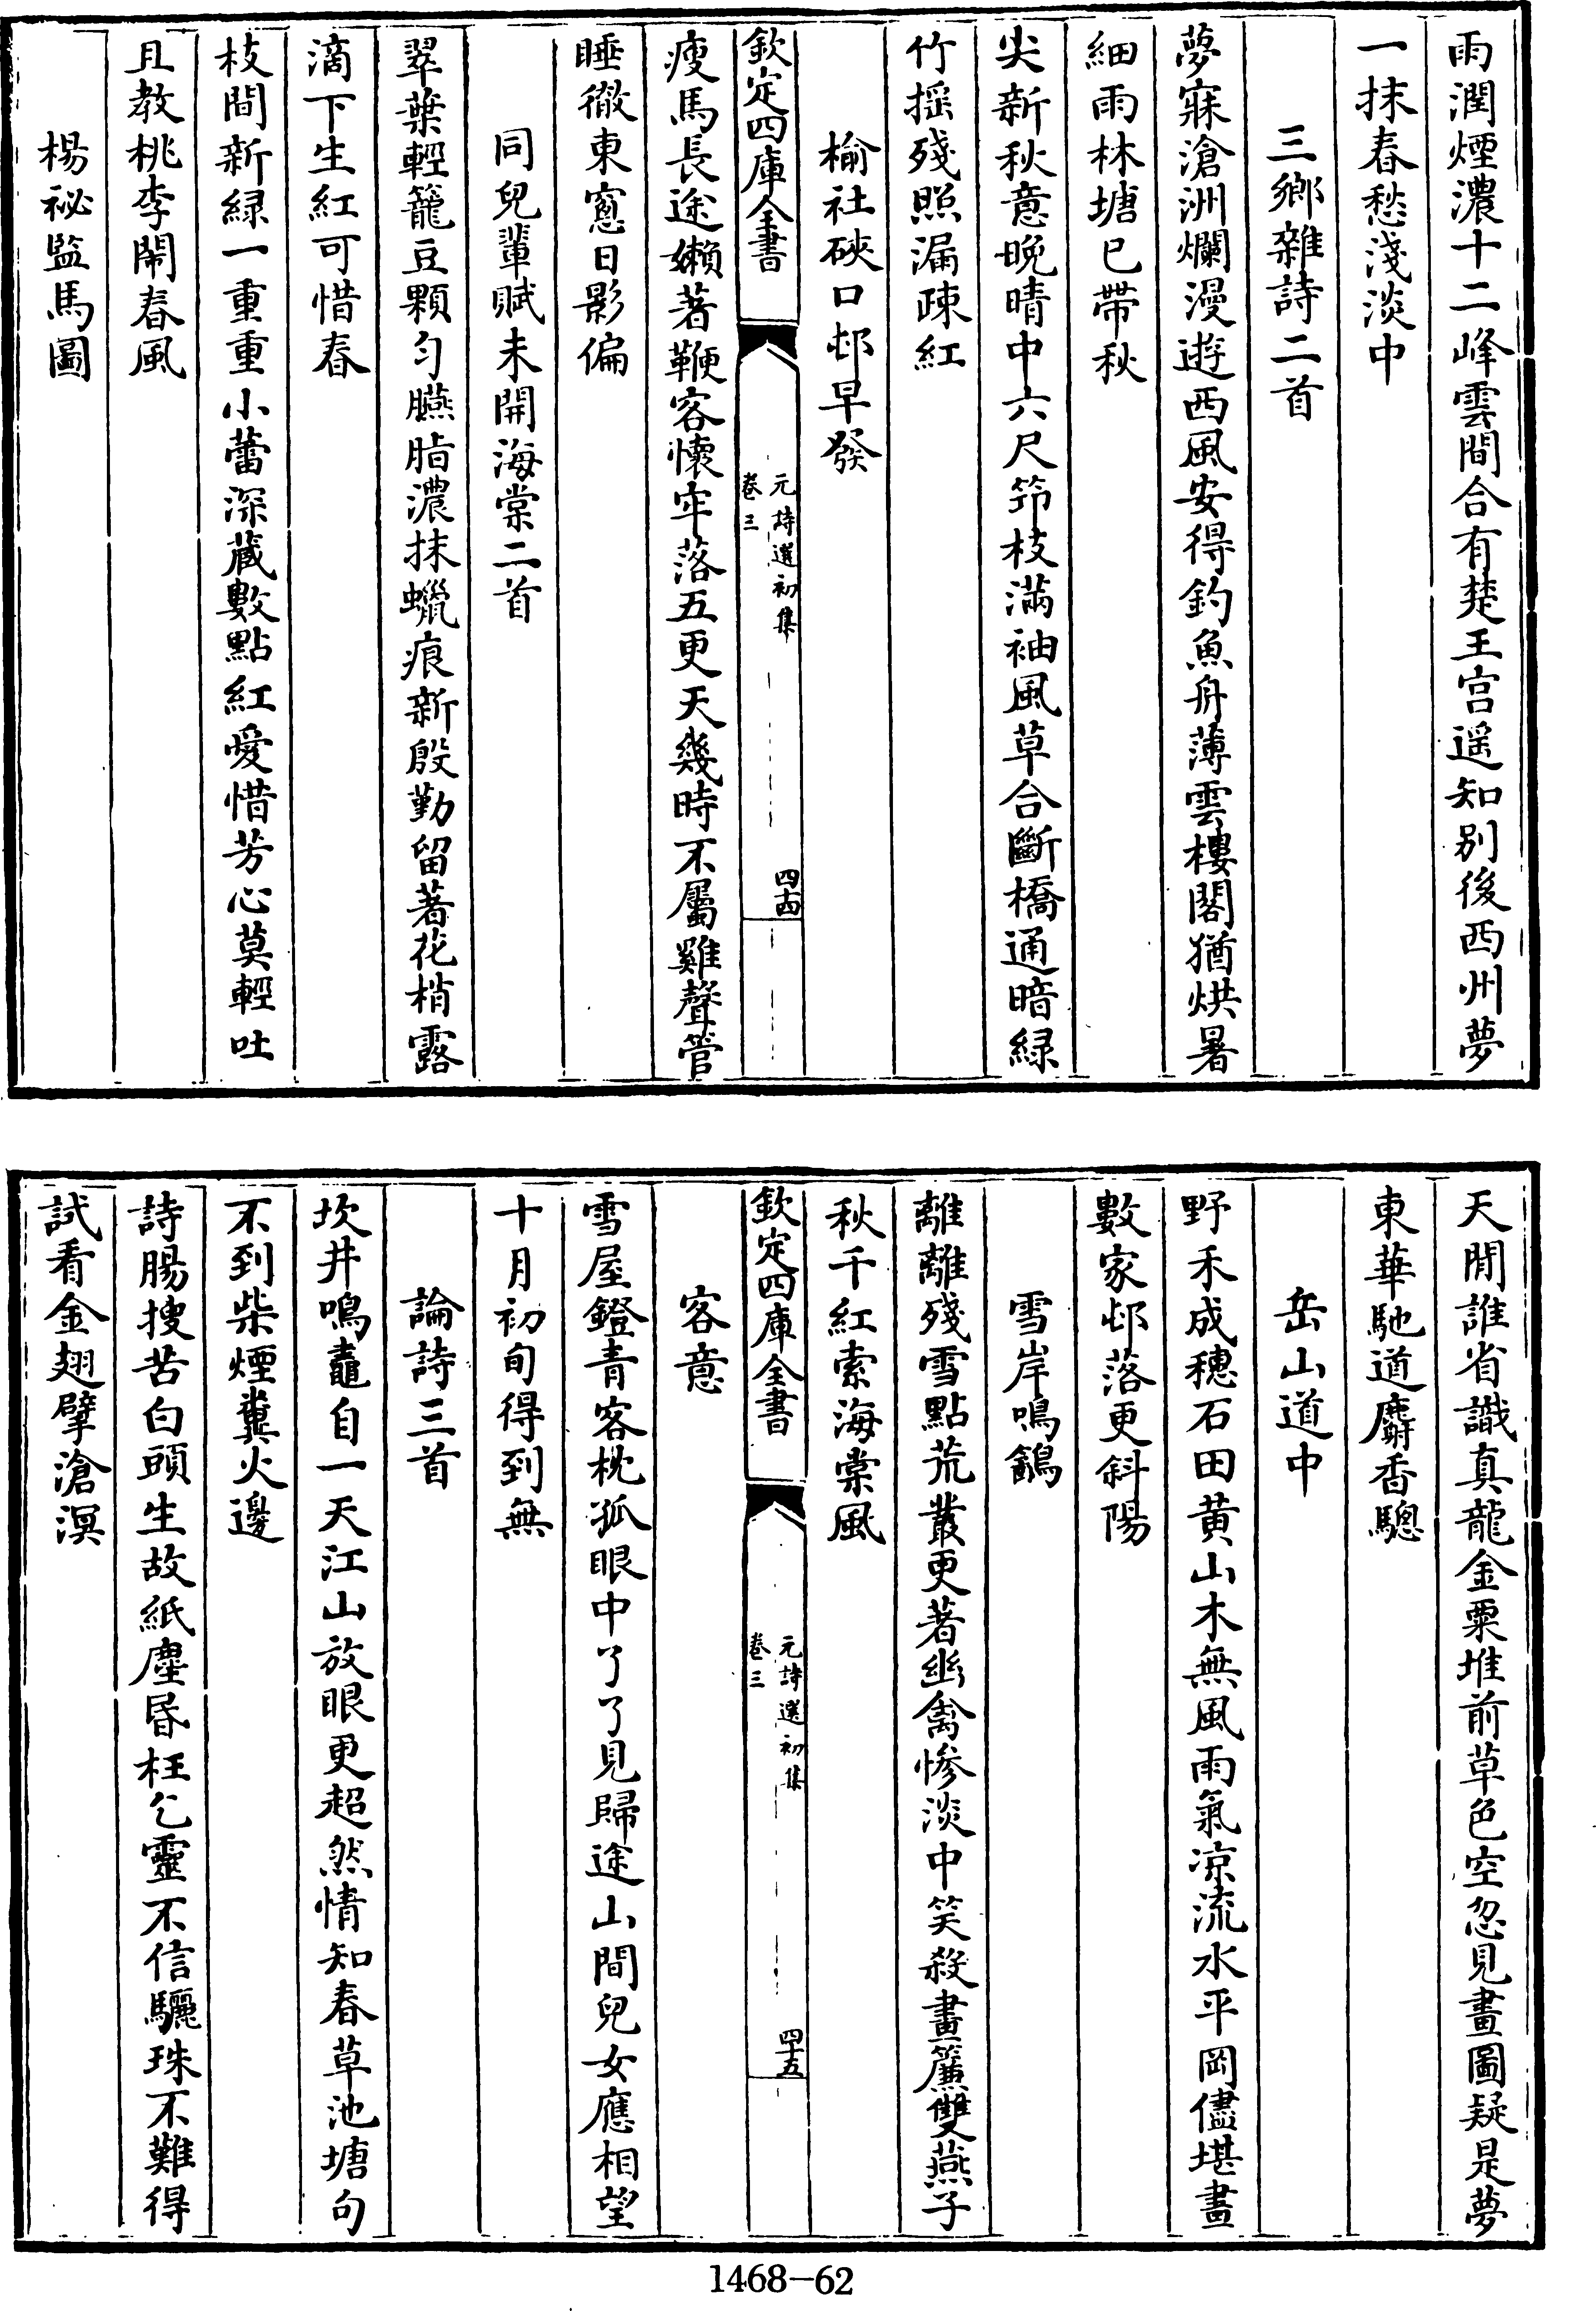 雨潤煙濃十二峰雲間合有楚王宫遥知别後西州夢
一抹春愁淺淡中
三鄉雜詩二首
夢寐滄洲爛漫遊西風安得釣魚舟薄雲樓閣猶烘暑
細雨林塘已帶秋
尖新秋意晚晴中六尺笻枝滿袖風草合斷橋通暗緑
竹摇殘照漏疎紅
榆社硤口邨早發
欽定四庫全書
元詩選初集
卷三
四十四
瘦馬長途嬾著鞭客懷牢落五更天幾時不屬雞聲管
睡徹東窻日影偏
同兒輩賦未開海棠二首
翠葉輕籠豆顆匀臙脂濃抹蠟痕新殷勤留著花梢露
滴下生紅可惜春
枝間新緑一重重小蕾深藏數點紅愛惜芳心莫輕吐
且教桃李鬧春風
楊祕監馬圖
天閒誰省識真龍金粟堆前草色空忽見畫圖疑是夢
東華馳道麝香驄
岳山道中
野禾成穗石田黄山木無風雨氣凉流水平岡儘堪畫
數家邨落更斜陽
雪岸鳴鶬
離離殘雪點荒叢更著幽禽慘淡中笑殺畫簾雙燕子
秋千紅索海棠風
欽定四庫全書
元詩選初集
卷三
四十五
客意
雪屋鐙青客枕孤眼中了了見歸途山間兒女應相望
十月初旬得到無
論詩三首
坎井鳴鼃自一天江山放眼更超然情知春草池塘句
不到柴煙糞火邊
詩腸搜苦白頭生故紙塵昏枉乞靈不信驪珠不難得
試看金翅擘滄溟
1468-62